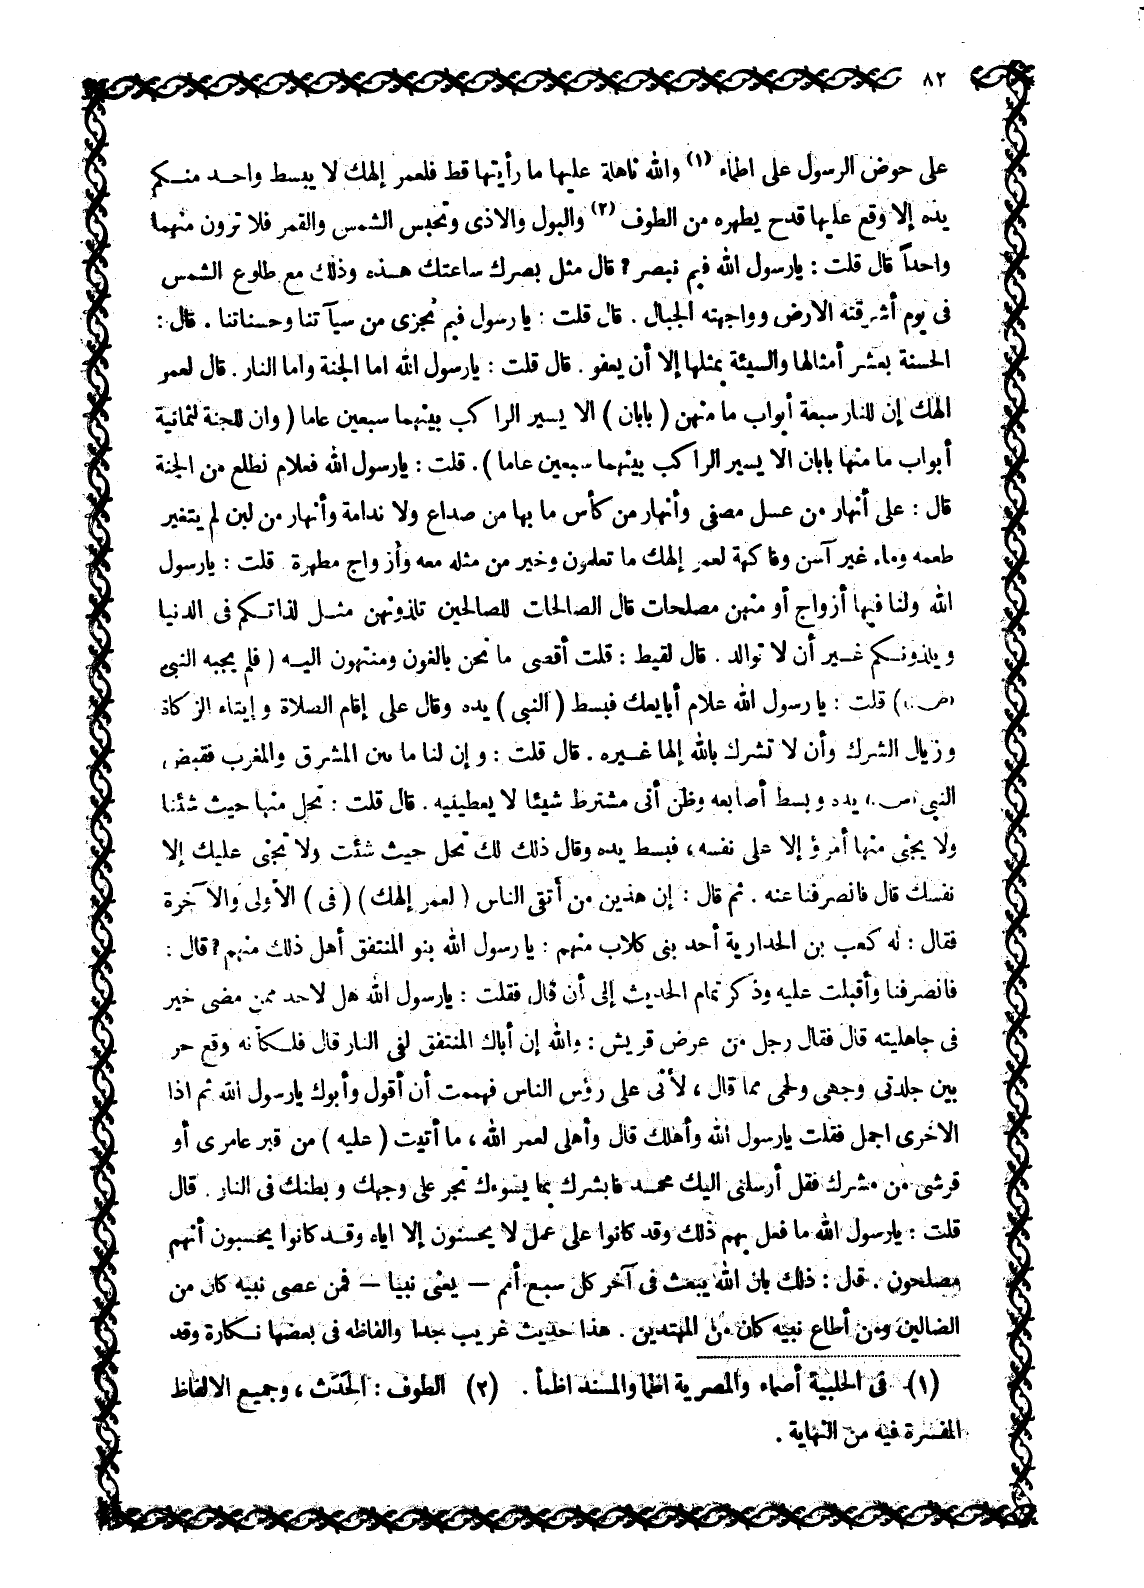 ٨٢
على حوض الرسول على اطماء (١) والله ناهلة عليها ما رأيتها قط فلعمر إلهك لا يبسط واحد منكم
يده إلا وقع عليها قدح يطهره من الطوف (٢) والبول والاذى وتحبس الشمس والقمر فلا ترون منهما
واحداً قال قلت : يارسول الله فبم نبصر ? قال مثل بصرك ساعتك هذه وذلك مع طلوع الشمس
فى يوم أشرقته الارض وواجهته الجبال . قال قلت : يارسول فبم نجزى من سيآتنا وحسناتنا . قال :
الحسنة بعشر أمثالها والسيئة بمثلها إلا أن يعفو . قال قلت : يارسول الله اما الجنة واما النار . قال لعمر
الهك إن للنار سبعة أبواب ما منهن ( بابان ) الا يسير الراكب بينهما سبعين عاما ( وان للجنة لثمانية
أبواب ما منها بابان الا يسير الراكب بينهما سبعين عاما ) . قلت : يارسول الله فعلام نطلع من الجنة
قال : على أنهار من عسل مصفى وأنهار من كأس ما بها من صداع ولا ندامة وأنهار من لبن لم يتغير
طعمه وماء غير آسن وفاكهة لعمر إلهك ما تعلمون وخير من مثله معه وأزواج مطهرة قلت : يارسول
الله ولنا فيها أزواج أو منهن مصلحات قال الصالحات للصالحين تلذونهن مثل لذاتكم فى الدنيا
ويلذونكم غير أن لا توالد . قال لقيط : قلت أقصى ما نحن بالغون ومنتهون اليه ( فلم يجبه النبى
(ص) ) قلت : يارسول الله علام أبايعك فبسط ( النبى ) يده وقال على إقام الصلاة وإيتاء الزكاة
وزيال الشرك وأن لا تشرك بالله إلها غيره . قال قلت : وإن لنا ما بين المشرق والمغرب فقبض
النبى (ص) يده وبسط أصابعه وظن أنى مشترط شيئا لا يعطينيه . قال قلت : نحل منها حيث شئنا
ولا يجنى منها أمرؤ إلا على نفسه ، فبسط يده وقال ذلك لك تحل حيث شئت ولا تجنى عليك إلا
نفسك قال فانصرفنا عنه . ثم قال : إن هذين من أتقى الناس ( لعمر إلهك ) ( فى ) الأولى والآخرة
فقال : له كعب بن الخدارية أحد بنى كلاب منهم : يارسول الله بنو المنتفق أهل ذلك منهم ? قال :
فانصرفنا وأقبلت عليه وذكر تمام الحديث إلى أن قال فقلت : يارسول الله هل لاحد ممن مضى خير
فى جاهليته قال فقال رجل من عرض قريش : والله إن أباك المنتفق لفى النار قال فلكأنه وقع حر
بين جلدتى وجهى ولحمى مما قال ، لأنى على رؤس الناس فهممت أن أقول وأبوك يارسول الله ثم اذا
الاخرى اجمل فقلت يارسول الله وأهلك قال وأهلى لعمر الله ، ما أتيت ( عليه ) من قبر عامرى أو
قرشى من مشرك فقل أرسلنى اليك محمد فابشرك بما يسوءك تجر على وجهك وبطنك فى النار . قال
قلت : يارسول الله ما فعل بهم ذلك وقد كانوا على عمل لا يحسنون إلا اياه وقد كانوا يحسبون أنهم
مصلحون . قال : ذلك بان الله يبعث فى آخر كل سبع أمم — يعنى نبيا — فمن عصى نبيه كان من
الضالين ومن أطاع نبيه كان من المهتدين . هذا حديث غريب جدا والفاظه فى بعضها نكارة وقد
(١) فى الحلبية أصماء والمصرية اظما والمسند اظمأ . (٢) الطوف : الحَدَث ، وجميع الالفاظ
المفسرة فيه من النهاية .